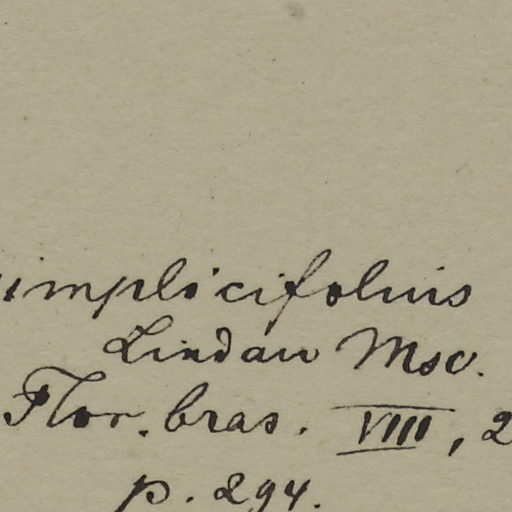 simplicifolius
Lindau Msc.
Flor. bras. VIII, 2
p. 294.